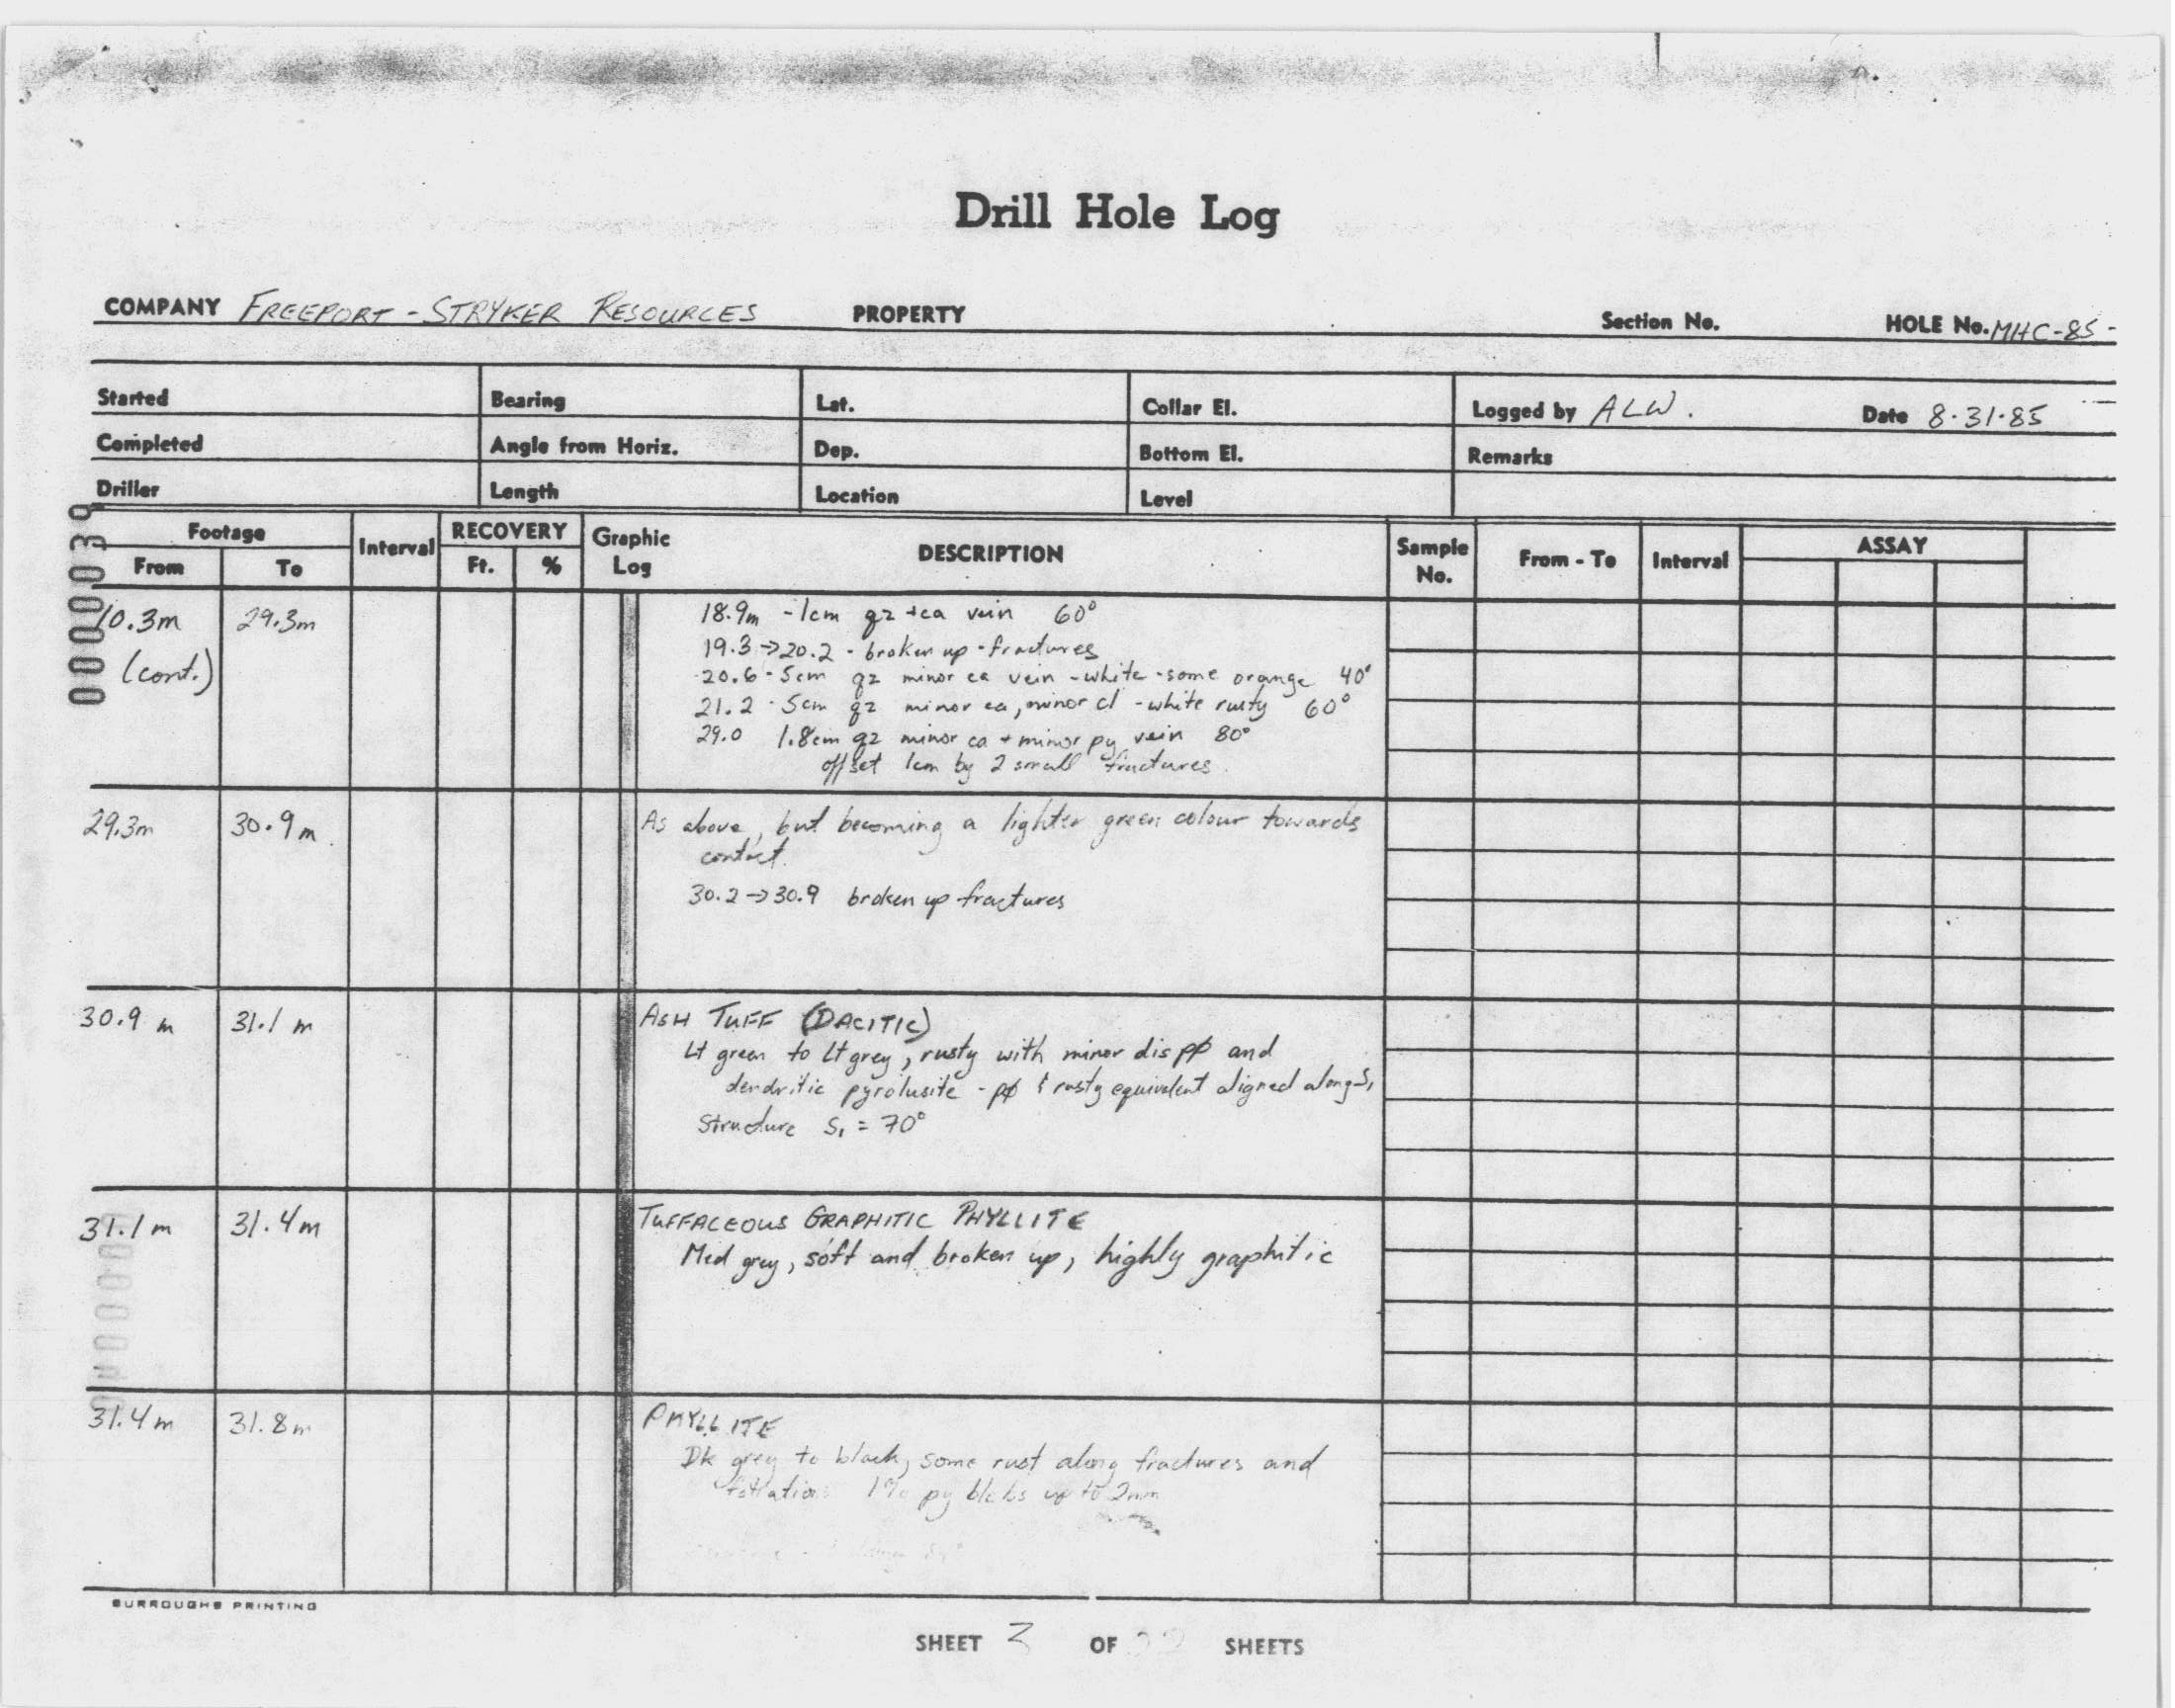 Drill Hole Log
COMPANY FREEPORT - STRYKER RESOURCES PROPERTY Section No. HOLE No. MHC-85-
Started Bearing Lat. Collar El. Logged by ALW. Date 8.31.85
Completed Angle from Horiz. Dep. Bottom El. Remarks
Driller Length Location Level
0000039
Footage Interval RECOVERY Graphic Log DESCRIPTION Sample No. From - To Interval ASSAY
From To Ft. %
10.3m 29.3m 18.9m - 1cm qz + ca vein 60°
19.3 → 20.2 - broken up - fractures
(cont.) 20.6 - 5cm qz minor ca vein - white - some orange 40°
21.2 - 5cm qz minor ca, minor cl - white rusty 60°
29.0 1.8cm qz minor ca + minor py vein 80°
offset 1cm by 2 small fractures
29.3m 30.9m As above, but becoming a lighter green colour towards
contact.
30.2 → 30.9 broken up fractures
30.9 m 31.1 m ASH TUFF (DACITIC)
Lt green to Lt grey, rusty with minor dis pφ and
dendritic pyrolusite - pφ & rusty equivalent aligned along S₁
Structure S₁ = 70°
31.1 m 31.4 m TUFFACEOUS GRAPHITIC PHYLLITE
Med grey, soft and broken up, highly graphitic
31.4 m 31.8 m PHYLLITE
Dk grey to black, some rust along fractures and
foliations 1% py blebs up to 2mm
BURROUGHS PRINTING
SHEET 3 OF SHEETS